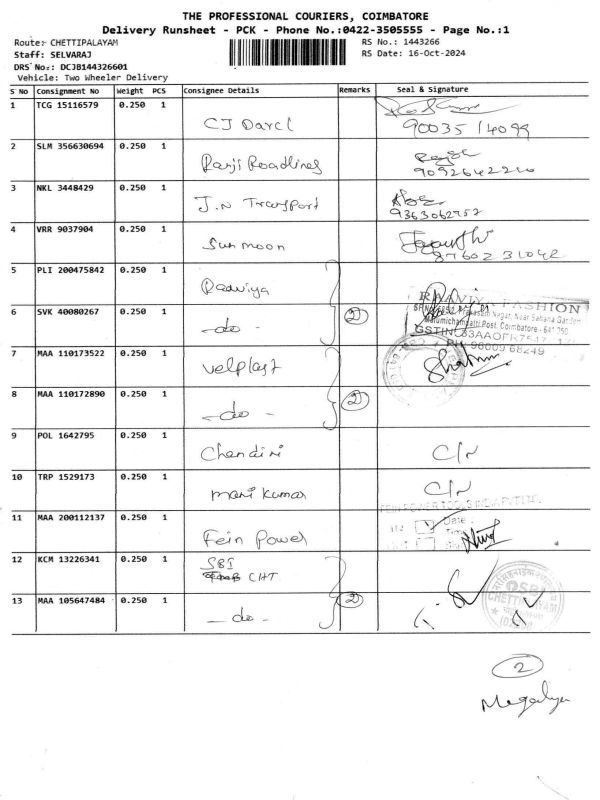 THE PROFESSIONAL COURIERS, COIMBATORE
Delivery Runsheet - PCK - Phone No.:0422-3505555 - Page No.:1
Route: CHETTIPALAYAM
RS No.: 1443266
Staff: SELVARAJ
RS Date: 16-Oct-2024
DRS No.: DCJB144326601
Vehicle: Two Wheeler Delivery
S No Consignment No Weight PCS Consignee Details Remarks Seal & Signature
1 TCG 15116579 0.250 1 CJ Darcl
90035 14099
2 SLM 356630694 0.250 1 Ranji Roadlines
9092642220
3 NKL 3448429 0.250 1 J.N Transport
9363062757
4 VRR 9037904 0.250 1 Sun moon
8760231042
5 PLI 200475842 0.250 1 Radviya
6 SVK 40080267 0.250 1 -do- 2
FASHION
Coimbatore - 641 250
7 MAA 110173522 0.250 1 velplast
8 MAA 110172890 0.250 1 -do- 2
9 POL 1642795 0.250 1 Chandini C/N
10 TRP 1529173 0.250 1 mani kumar C/N
FEIN POWER TOOLS INDIA PVT LTD
11 MAA 200112137 0.250 1 Fein Power
Date :
12 KCM 13226341 0.250 1 SBI
CHT
13 MAA 105647484 0.250 1 -do- 2
SBI
CHETTIPALAYAM
2